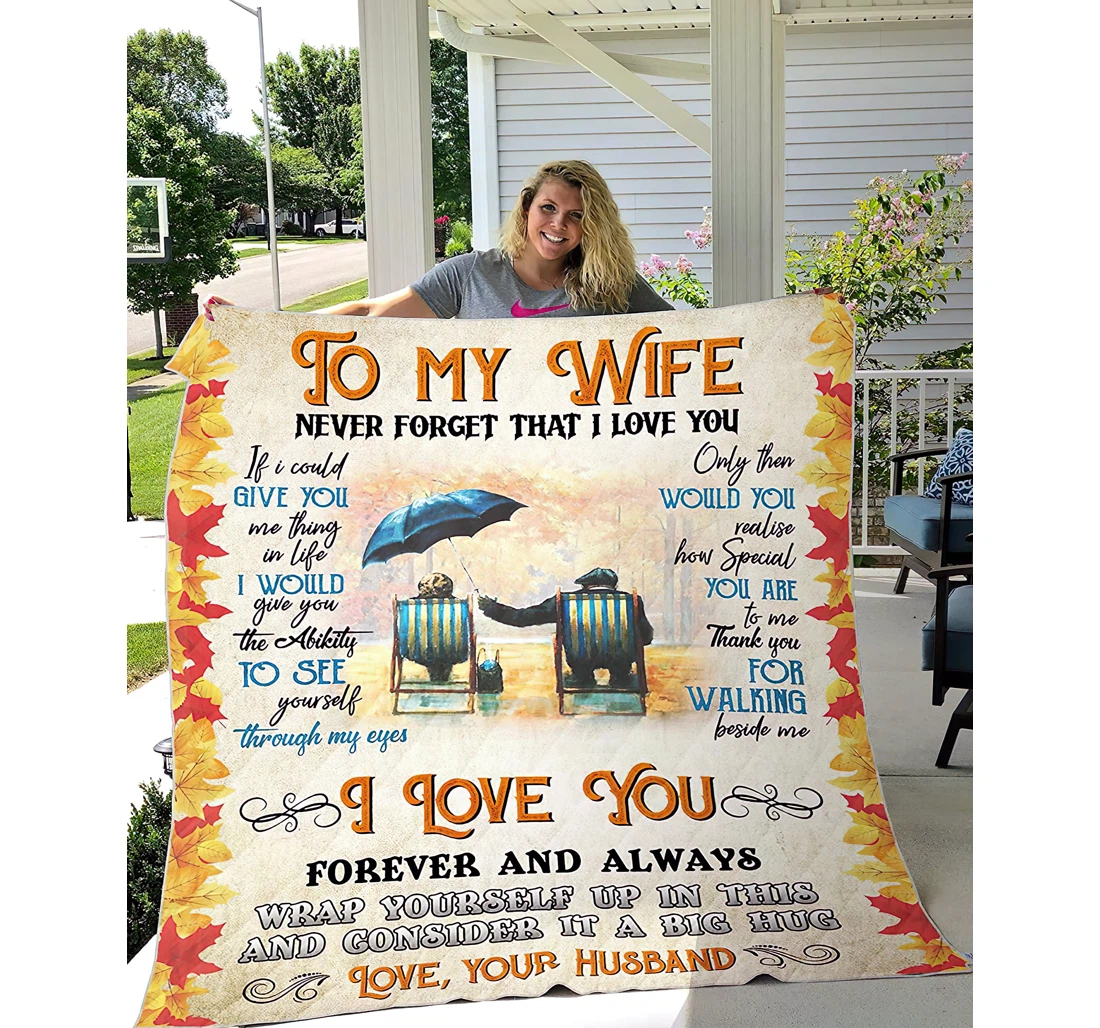 TO MY WIFE
NEVER FORGET THAT I LOVE YOU
If i could
GIVE YOU
me thing
in life
I WOULD
give you
the Abikity
TO SEE
yourself
through my eyes
Only then
WOULD YOU
realise
how Special
YOU ARE
to me
Thank you
FOR
WALKING
beside me
I LOVE YOU
FOREVER AND ALWAYS
WRAP YOURSELF UP IN THIS
AND CONSIDER IT A BIG HUG
LOVE, YOUR HUSBAND